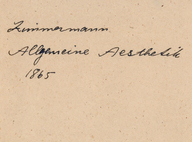 Zimmermann
Allgemeine Aesthetik
1865